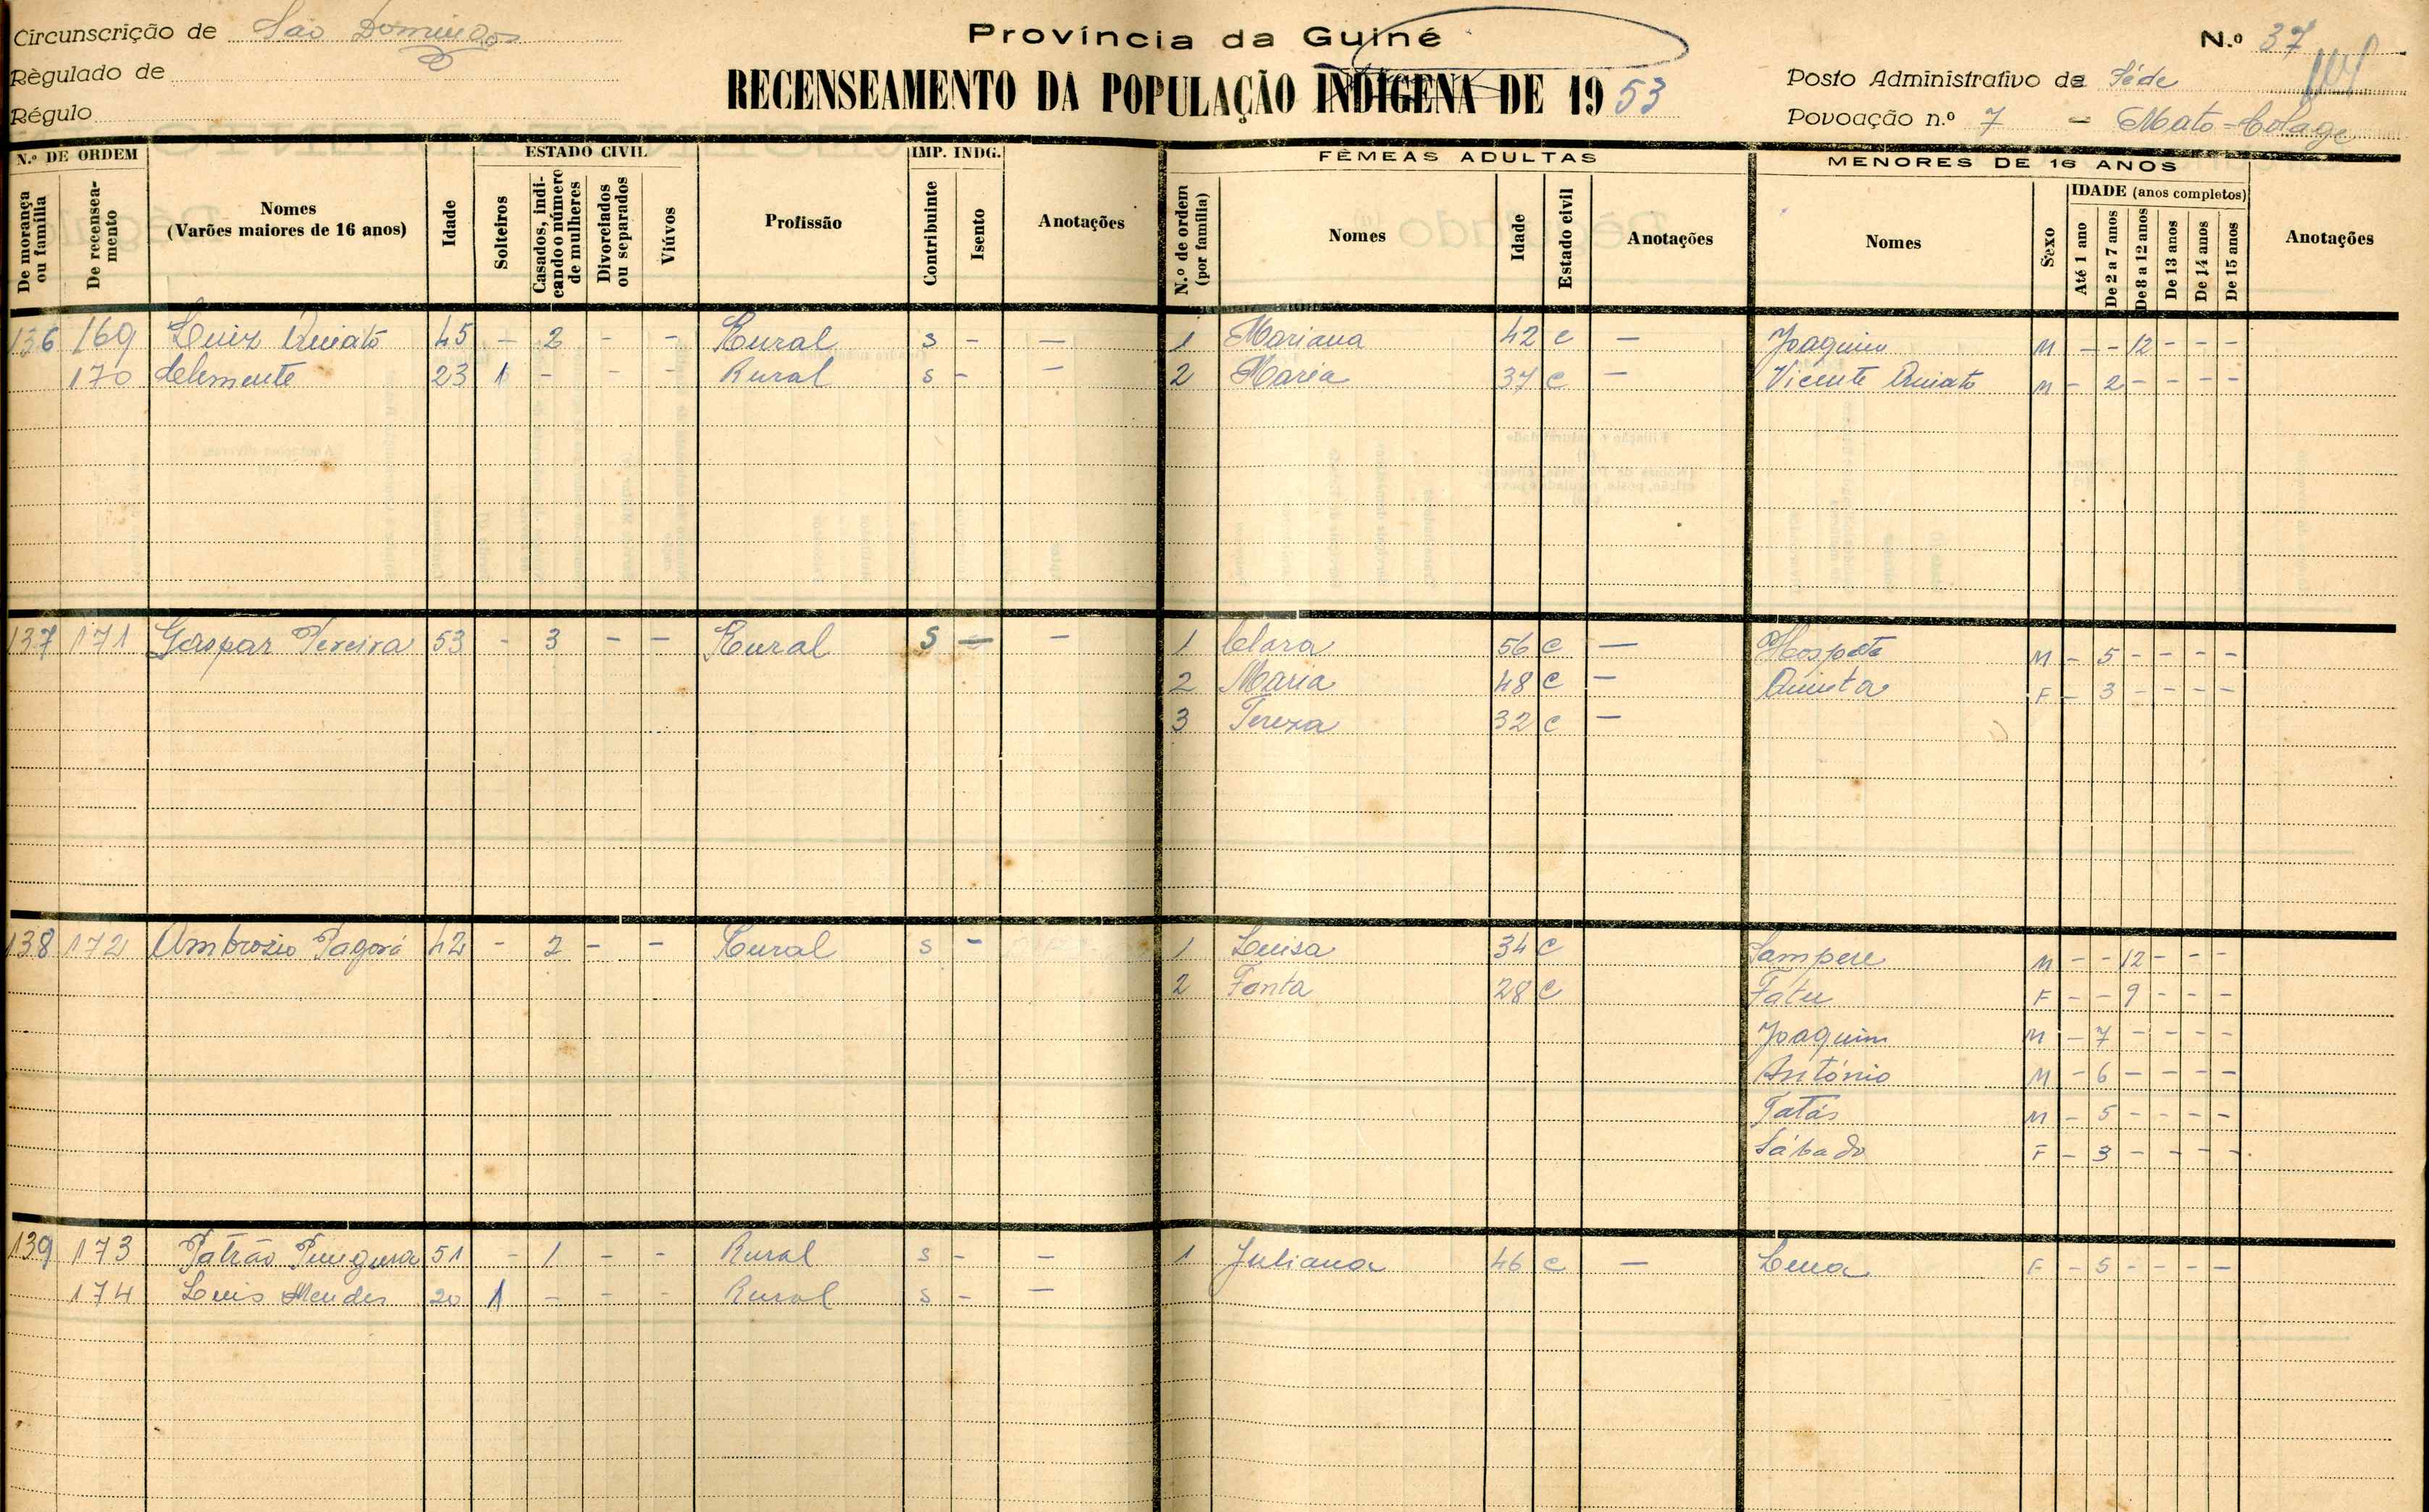 Circunscrição de São Domingos
Règulado de
Régulo
Província da Guiné
RECENSEAMENTO DA POPULAÇÃO INDÍGENA DE 1953
N.º 37
Posto Administrativo de Séde
Povoação n.º 7 - Mato-Colage
N.º DE ORDEM
De morança ou família
De recenseamento
Nomes
(Varões maiores de 16 anos)
Idade
ESTADO CIVIL
Solteiros
Casados, indicando o número de mulheres
Divorciados ou separados
Viúvos
Profissão
IMP. INDG.
Contribuinte
Isento
Anotações
FÊMEAS ADULTAS
N.º de ordem (por família)
Nomes
Idade
Estado civil
Anotações
MENORES DE 16 ANOS
Nomes
Sexo
IDADE (anos completos)
Até 1 ano
De 2 a 7 anos
De 8 a 12 anos
De 13 anos
De 14 anos
De 15 anos
Anotações
136 169 Luiz Quiató 45 - 2 - - Rural s - - 1 Mariana 42 c - Joaquim M - - 12 - - -
170 Clemente 23 1 - - - Rural s - - 2 Maria 37 c - Vicente Quiato M - 2 - - - -
137 171 Gaspar Pereira 53 - 3 - - Rural S - - 1 Clara 56 c - M - 5 - - - -
2 Maria 48 c - Quinta F - 3 - - - -
3 Tereza 32 c -
138 172 Ambrozio 42 - 2 - - Rural s - 1 Luisa 34 c Sampere M - - 12 - - -
2 Fonta 28 c Fatu F - - 9 - - -
Joaquim M - 7 - - - -
António M - 6 - - - -
Tatás M - 5 - - - -
Sábado F - 3 - - - -
139 173 Patrão 51 - 1 - - Rural s - - 1 Juliana 46 c - F - 5 - - - -
174 Luis Mendes 20 1 - - - Rural s - -